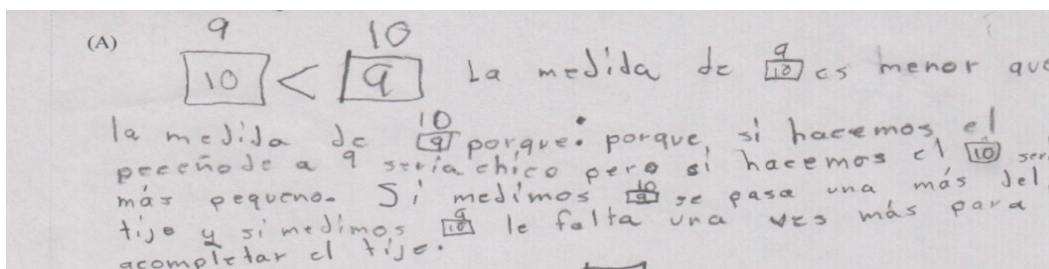 9 10
(A) 10 < 9 La medida de 9 10 es menor que
la medida de 10 9 porque: porque, si hacemos el
peceño de a 9 sería chico pero si hacemos el 10 serí
más pequeno. Si medimos 10 9 se pasa una más del
tije y si medimos 9 10 le falta una ves más para
acompletar el tije.